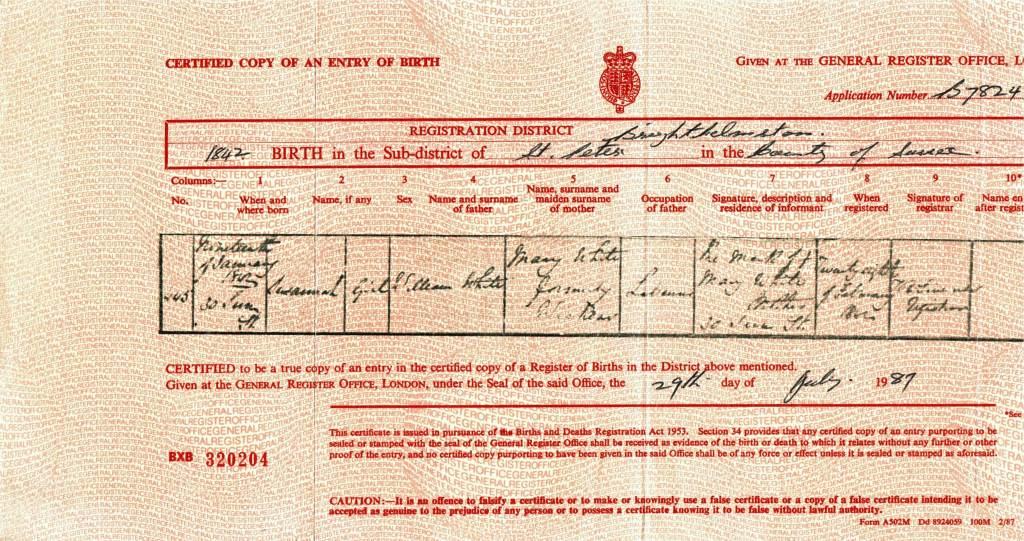 CERTIFIED COPY OF AN ENTRY OF BIRTH
GIVEN AT THE GENERAL REGISTER OFFICE, LO
Application Number B 7824
REGISTRATION DISTRICT Brighthelmston.
1842 BIRTH in the Sub-district of St. Peter in the County of Sussex
Columns:— 1 2 3 4 5 6 7 8 9 10*
No. When and where born Name, if any Sex Name and surname of father Name, surname and maiden surname of mother Occupation of father Signature, description and residence of informant When registered Signature of registrar Name en after regist
Nineteenth of January Susannah Girl William White Mary White formerly The Mark of Mary White Mother 30 St. Twenty eighth of February Registrar
CERTIFIED to be a true copy of an entry in the certified copy of a Register of Births in the District above mentioned.
Given at the GENERAL REGISTER OFFICE, LONDON, under the Seal of the said Office, the 29th day of July. 1987
*See
This certificate is issued in pursuance of the Births and Deaths Registration Act 1953. Section 34 provides that any certified copy of an entry purporting to be
sealed or stamped with the seal of the General Register Office shall be received as evidence of the birth or death to which it relates without any further or other
proof of the entry, and no certified copy purporting to have been given in the said Office shall be of any force or effect unless it is sealed or stamped as aforesaid.
BXB 320204
CAUTION:—It is an offence to falsify a certificate or to make or knowingly use a false certificate or a copy of a false certificate intending it to be
accepted as genuine to the prejudice of any person or to possess a certificate knowing it to be false without lawful authority.
Form A502M Dd 8924059 100M 2/87